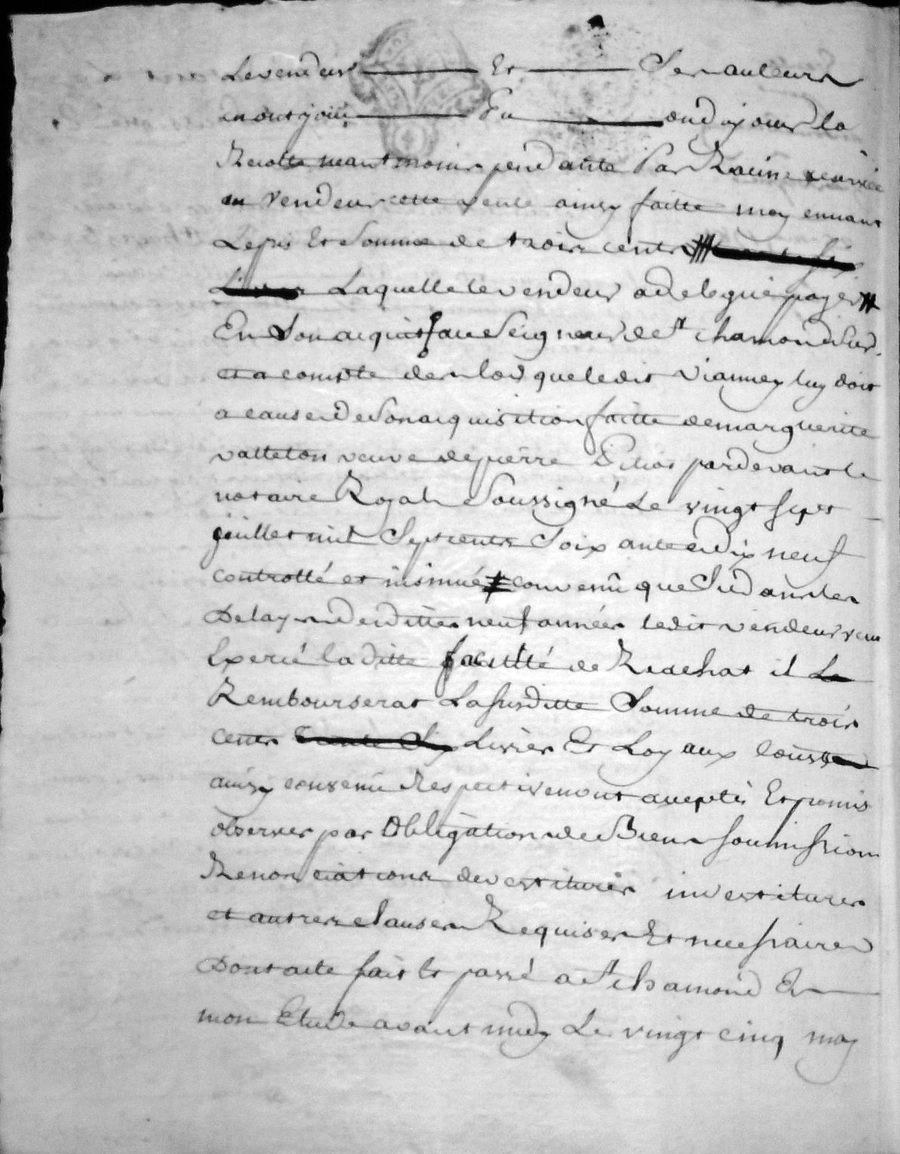 Le vendeur Et Ses auteurs
en ont joüi En ou dû joüir la
Recolte neantmoins pendante Par Racine reservée
au vendeur cette vente ainsy faitte moyennant
Le prix Et Somme de trois cents
Laquelle le vendeur a delegué payer
En Son acquit au Seigneur de St chamond Sur
et a compte des lods que ledit Vianney luy doit
a cause de Son acquisition faitte de marguerite
valleton veuve de pierre pardevant le
notaire Royal Soussigné Le vingt Sept
juillet mil Sept cents Soixante et dix neuf
controllé et insinué convenû que Si dans les
Delays desdittes neuf années ledit vendeur veut
Exercé laditte faculté de Rachat il
Remboursera La susditte Somme de trois
cents Livres Et Loyaux Cousts
ainsy convenû Respectivement acceptés Et promis
observer par Obligation de Biens soumissions
Renonciations devestitures investitures
et autres clauses Requises Et necessaires
Dont acte fait Et passé a St chamond En
mon Etude avant midy Le vingt cinq may